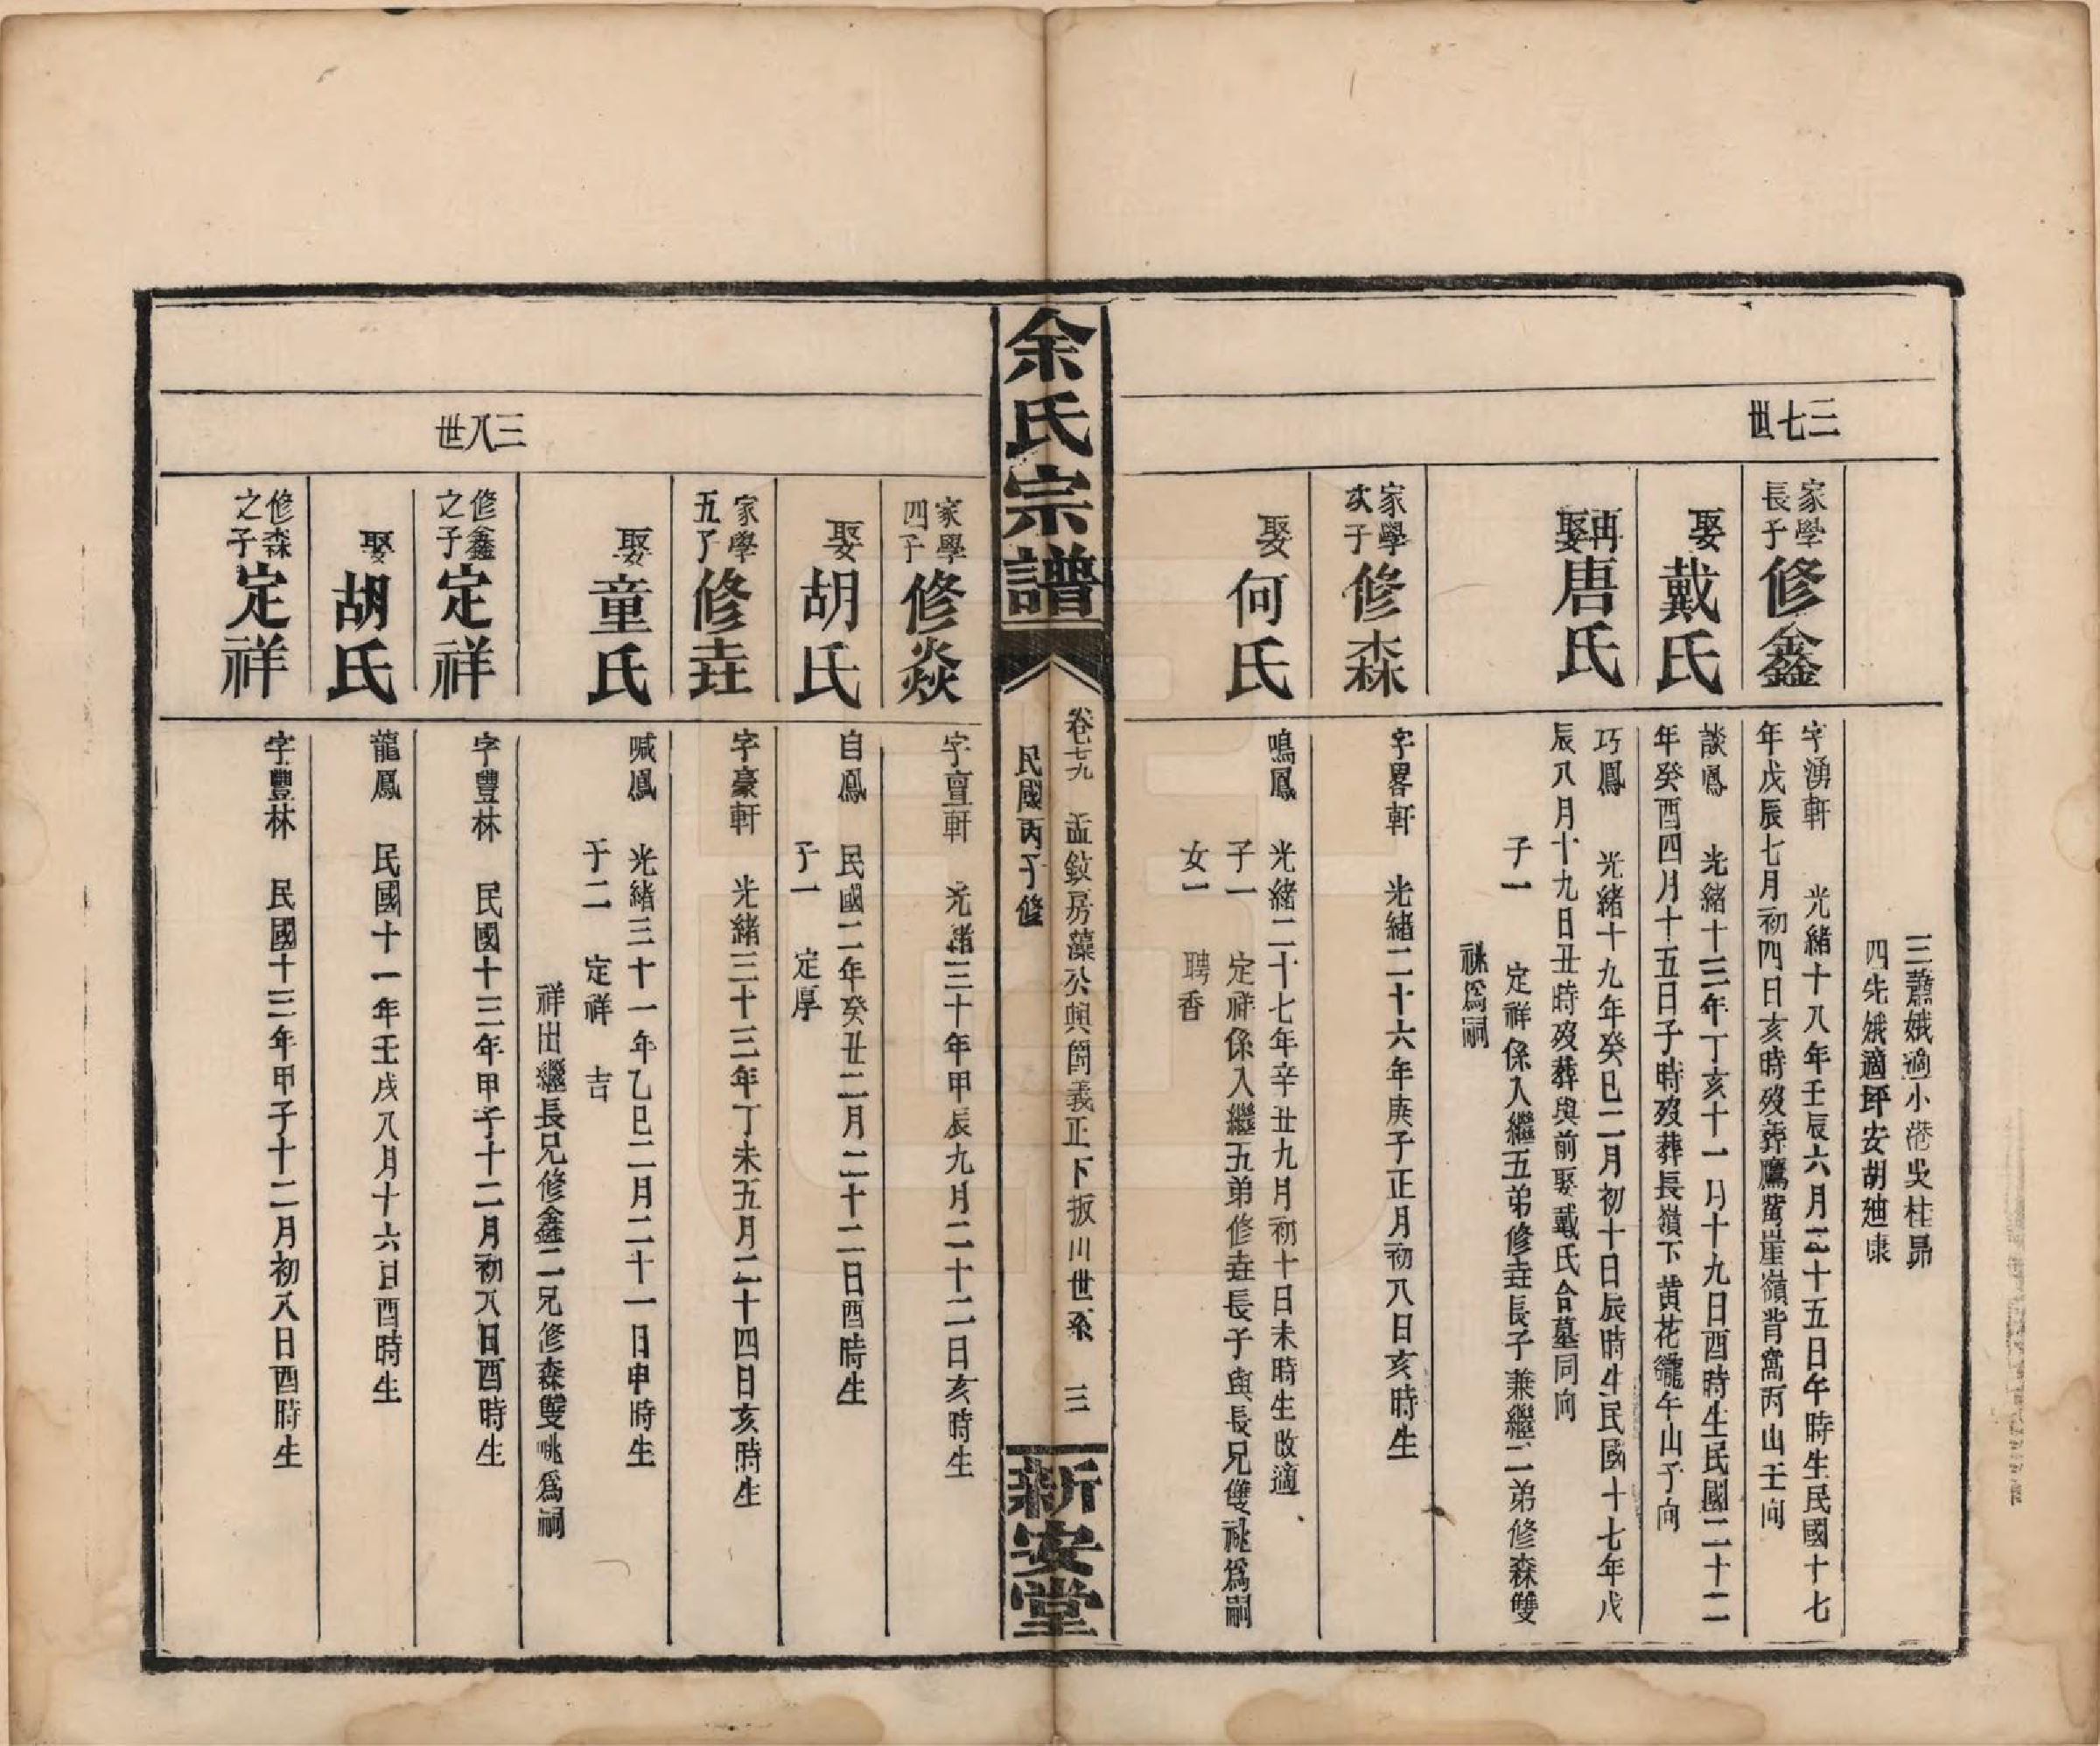 三七世
三蕭娥適小港吳桂昴
四先娥適坪安胡廸康
家學長子
修鑫
字湧軒 光緒十八年壬辰六月二十五日午時生民國十七
年戊辰七月初四日亥時歿葬鷹巖崖嶺背窩丙山壬向
娶
戴氏
談鳳 光緒十三年丁亥十一月十九日酉時生民國二十二
年癸酉四月十五日子時歿葬長嶺下黄花壠午山子向
再娶
唐氏
巧鳳 光緒十九年癸巳二月初十日辰時生民國十七年戊
辰八月十九日丑時歿葬與前娶戴氏合墓同向
子一 定祥係入繼五弟修垚長子兼繼二弟修森雙
祧爲嗣
家學次子
修森
字畧軒 光緒二十六年庚子正月初八日亥時生
娶
何氏
鳴鳳 光緒二十七年辛丑九月初十日未時生改適
子一 定祥係入繼五弟修垚長子與長兄雙祧爲嗣
女一 聘香
余氏宗譜
卷七九 孟敘房藻公輿閤義正下扳川世系 三
民國丙子修
新安堂
家學四子
修焱
字亶軒 光緒三十年甲辰九月二十二日亥時生
娶
胡氏
自鳳 民國二年癸丑二月二十二日酉時生
子一 定厚
家學五子
修垚
字豪軒 光緒三十三年丁未五月二十四日亥時生
娶
童氏
喊鳳 光緒三十一年乙巳二月二十一日申時生
子二 定祥 吉
祥出繼長兄修鑫二兄修森雙祧爲嗣
三八世
修鑫之子
定祥
字豐林 民國十三年甲子十二月初八日酉時生
娶
胡氏
龍鳳 民國十一年壬戌八月十六日酉時生
修森之子
定祥
字豐林 民國十三年甲子十二月初八日酉時生